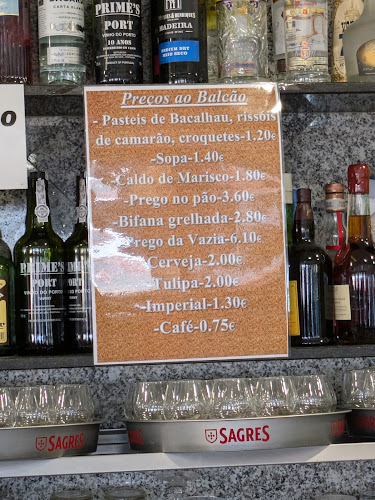 PRIME'S
PORT
VINHO DO PORTO
10 ANOS
MADEIRA
MEDIUM DRY
MEIO SECO
o
Preços ao Balcão
- Pasteis de Bacalhau, rissóis
de camarão, croquetes-1.20€
-Sopa-1.40€
- Caldo de Marisco-1.80€
-Prego no pão-3.60€
-Bifana grelhada-2.80€
-Prego da Vazia-6.10€
-Cerveja-2.00€
-Tulipa-2.00€
-Imperial-1.30€
-Café-0.75€
PRIME'S
PORT
VINHO DO PORTO
PRIME'S
PORT
SAGRES
SAGRES
SAGRES